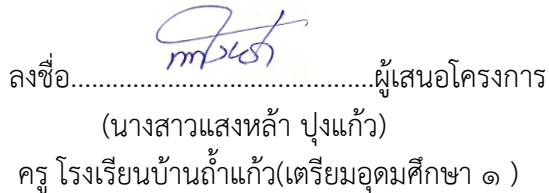 ลงชื่อ............................................ผู้เสนอโครงการ
(นางสาวแสงหล้า ปุงแก้ว)
ครู โรงเรียนบ้านถ้ำแก้ว(เตรียมอุดมศึกษา ๑ )